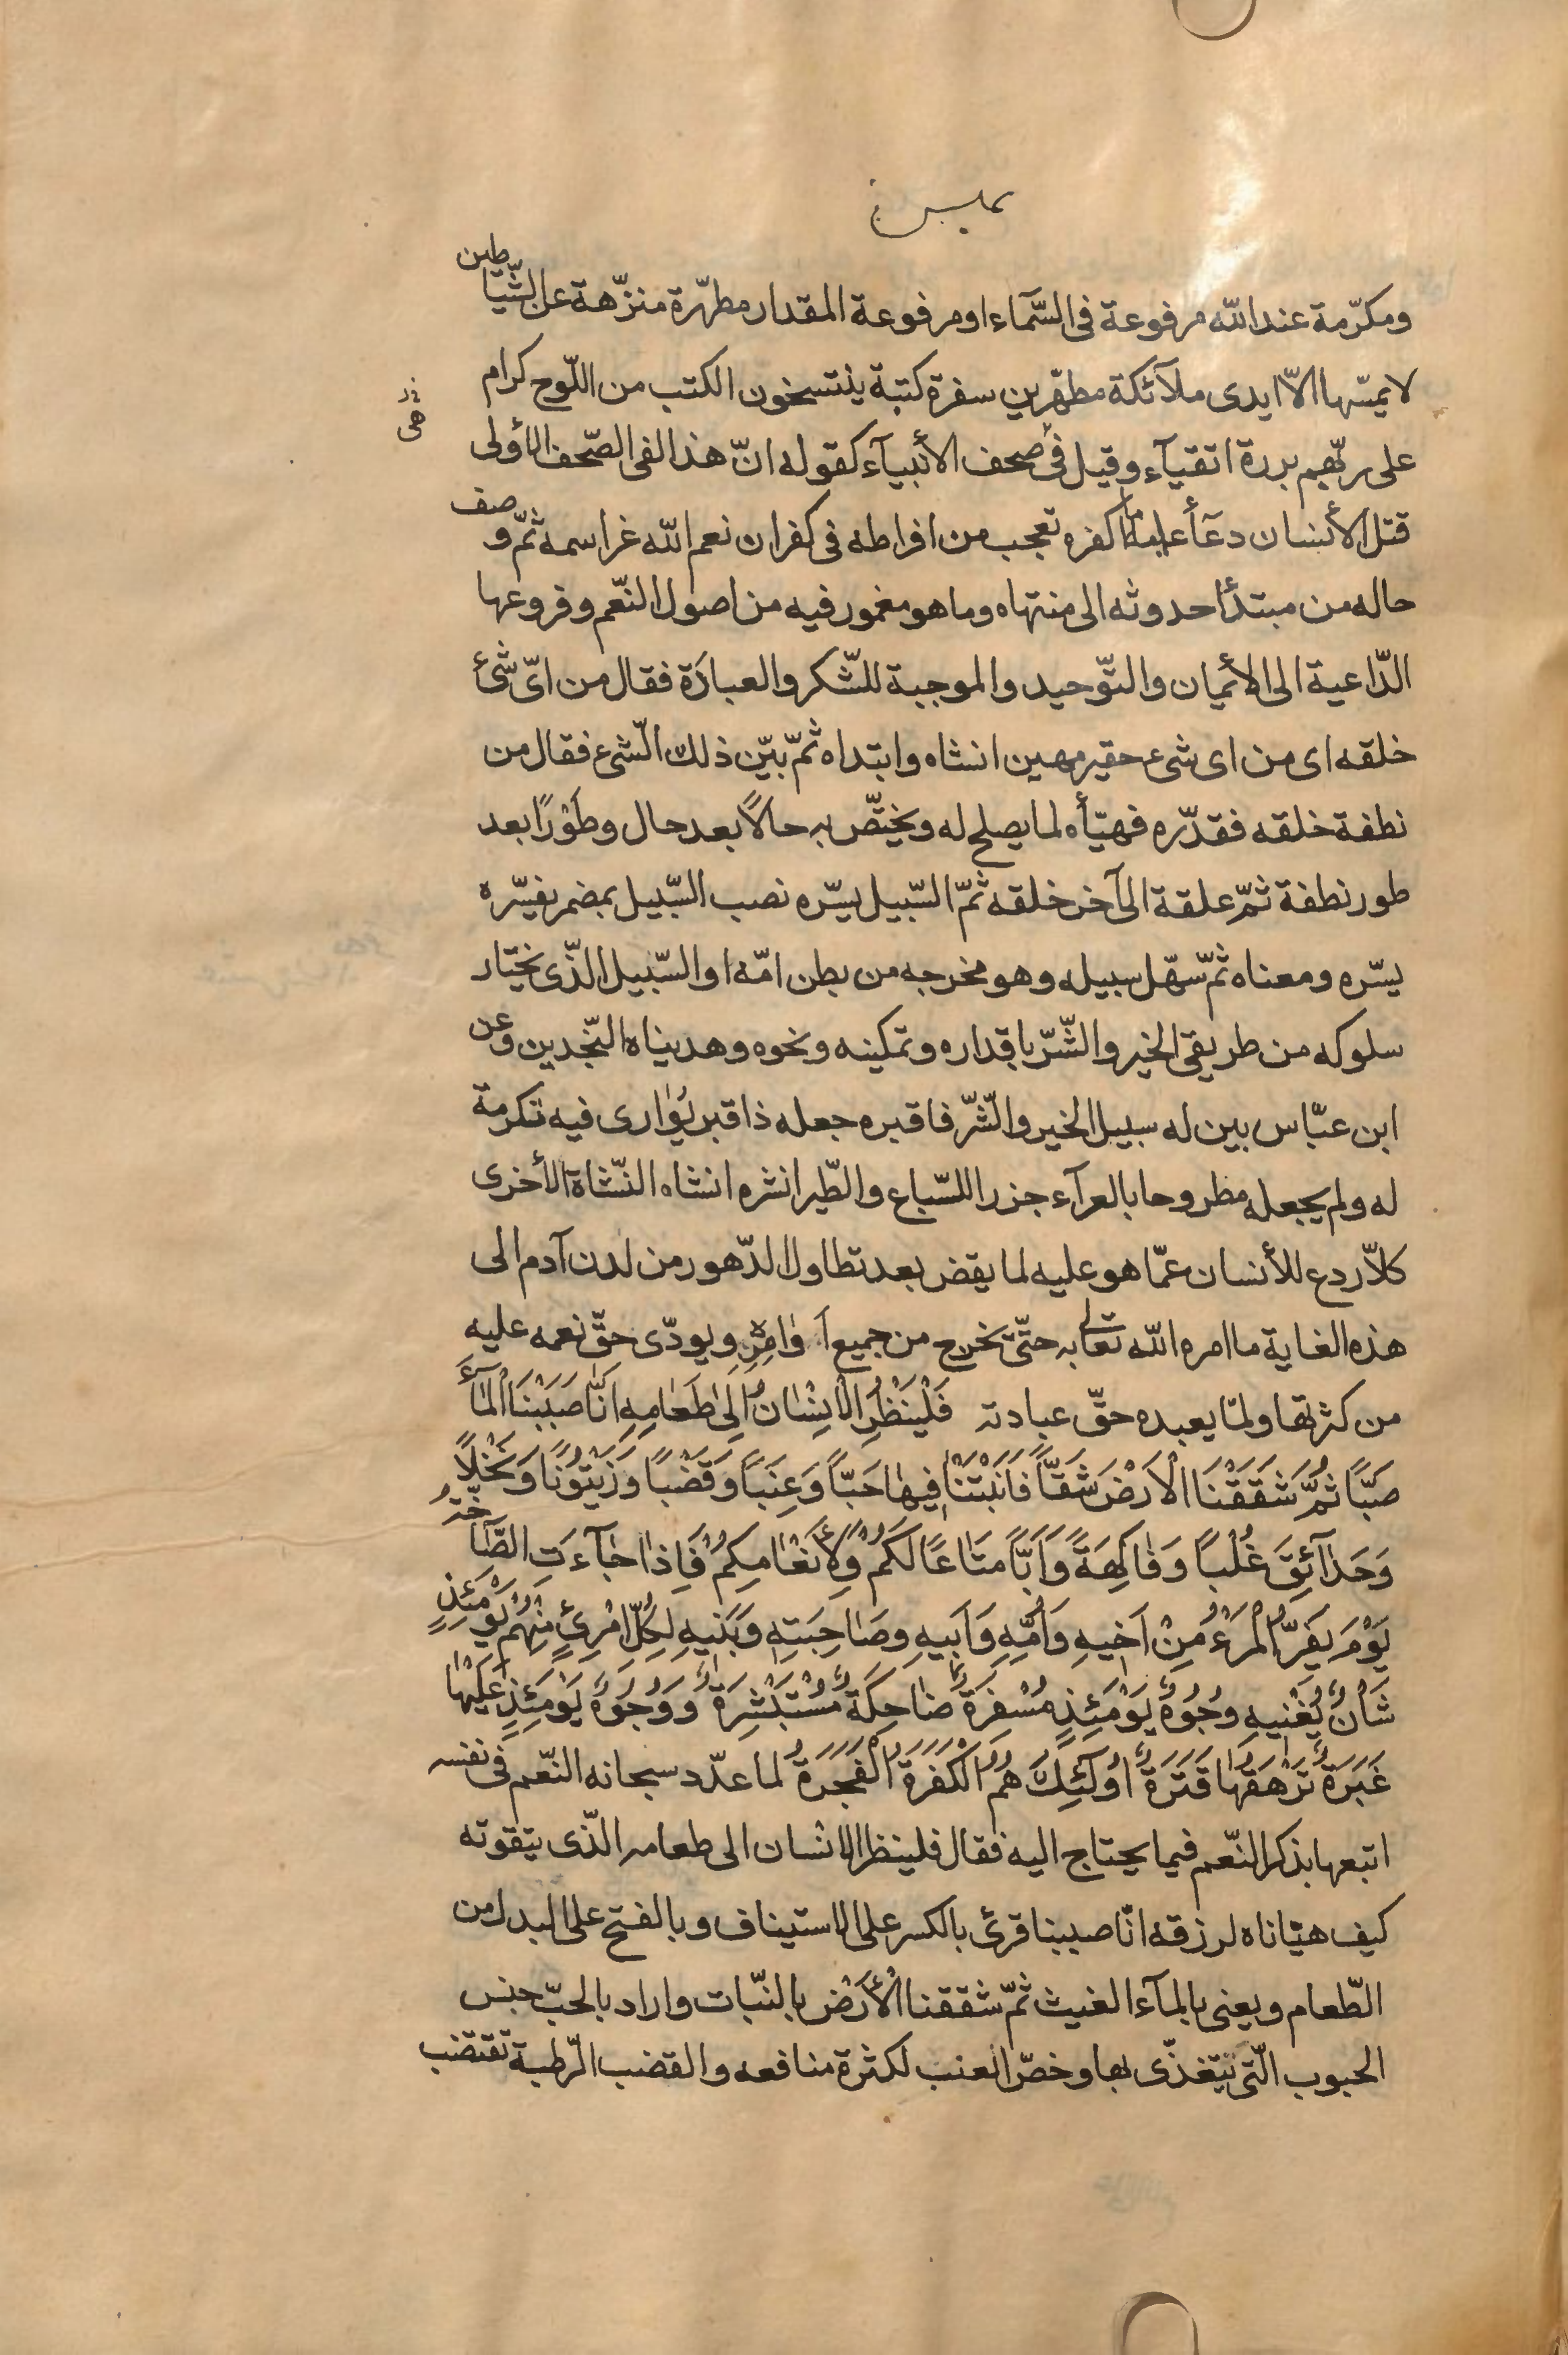 ومكرّمة عند الله مرفوعة فى السّمآء او مرفوعة المقدار مطهّرة منزّهة عن الشّياطين
لا يمسّها الّا ايدى ملآئكة مطهّرين سفرة كتبة ينتسخون الكتب من اللّوح كرام
على ربّهم بررة اتقيآء وقيل هى صحف الأنبيآء كقوله انّ هذا لفى الصّحف الأولى
قتل الأنسان دعآأ عليه ما اكفره تعجب من افراطه فى كفران نعم الله غراسمه ثمّ وصف
حاله من مبتدأ حدوثه الى منتهاه وما هو مغمور فيه من اصول النّعم وفروعها
الدّاعية الى الأيمان والتّوحيد والموجبة للشّكر والعبادَة فقال من اىّ شئ
خلقه اى من اى شىء حقير مهين انشاه وابتداه ثمّ بيّن ذلك الشّىء فقال من
نطفة خلقه فقدّره فهيّأه لما يصلح له ويختّص به حالًا بعد حال وطَوْرًا بعد
طور نطفة ثمّ علقة الى آخر خلقه ثمّ السّبيل يسّره نصب السّبيل بمضمر يفسّره
يسّره ومعناه ثمّ سهّل سبيله وهو مخرجه من بطن امّه او السّبيل الذّى يختار
سلوكه من طريقى الخير والشّرّ باقداره وتمكينه ونحوه وهديناه النّجدين وعن
ابن عبّاس بين له سبيل الخير والشّرّ فاقبره جعله ذا قبر يُوارى فيه تكرمة
له ولم يجعله مطروحا بالعرآء جزرا للسّباع والطّير انشره انشاه النّشاة الأخرى
كلّا ردع للأنسان عمّا هو عليه لما يقض بعد تطاول الدّهور من لدن آدم الى
هذه الغاية ما امره الله تعالى به حتّى تخرج من جميع اَوامِرِه ويودّى حقّ نعمه عليه
من كثرتها ولمّا يعبده حقّ عبادته فَلْيَنْظُرِ الْاِنْسٰانُ اِلىٰ طَعٰامِهِ اَنّٰا صَبَبْنَا الْمٰآءَ
صَبًّا ثُمَّ شَقَقْنَا الْاَرْضَ شَقًّا فَاَنْبَتْنٰا فِيهٰا حَبًّا وَعِنَبًا وَقَضْبًا وَزَيْتُونًا وَنَخْلًا
وَحَدٰآئِقَ غُلْبًا وَفٰاكِهَةً وَاَبًّا مَتٰاعًا لَكُمْ وَلِأَنْعٰامِكُمْ فَاِذٰا جٰآءَتِ الصّٰآخَّةُ
يَوْمَ يَفِرُّ الْمَرْءُ مِنْ اَخِيهِ وَاُمِّهِ وَاَبِيهِ وَصٰاحِبَتِهِ وَبَنيهِ لِكُلِّ امْرِئٍ مِنْهُمْ يَوْمَئِذٍ
شَأْنٌ يُغْنيهِ وُجُوهٌ يَوْمَئِذٍ مُسْفِرَةٌ ضٰاحِكَةٌ مُسْتَبْشِرَةٌ وَوُجُوهٌ يَوْمَئِذٍ عَلَيْهٰا
غَبَرَةٌ تَرْهَقُهٰا قَتَرَةٌ اُولٰٓئِكَ هُمُ الْكَفَرَةُ الْفَجَرَةُ لما عدّد سبحانه النّعم فى نفسه
اتبعها بذكر النّعم فيما يحتاج اليه فقال فلينظر الانسان الى طعامه الذّى يتقوته
كيف هيّاناه لرزقه انّا صببنا قرئ بالكسر على الاستيناف وبالفتح على البدل من
الطّعام ويعنى بالمآء الغيث ثمّ شققنا الْأرَضْ بالنّبات واراد بالحبّ جنس
الحبوب الّتى يتغذّى بها وخصّ العنب لكثرة منافعه والقضب الرّطبة تقتضب